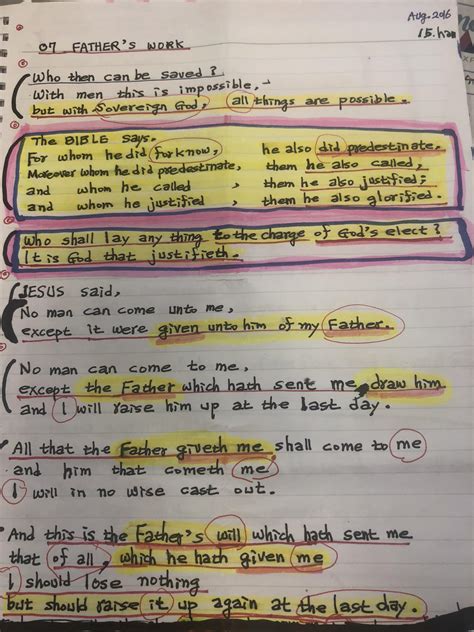 Aug. 2016
07 FATHER'S WORK
Who then can be saved?
With men this is impossible,
but with Sovereign God, all things are possible.
The BIBLE says.
For whom he did forknow, he also did predestinate.
Moreover whom he did predestinate, them he also called,
and whom he called, them he also justified;
and whom he justified, them he also glorified.
Who shall lay any thing to the charge of God's elect?
It is God that justifieth.
JESUS said,
No man can come unto me,
except it were given unto him of my Father.
No man can come to me,
except the Father which hath sent me draw him
and I will raise him up at the last day.
All that the Father giveth me shall come to me
and him that cometh me
I will in no wise cast out.
And this is the Father's will which hath sent me
that of all, which he hath given me
I should lose nothing
but should raise it up again at the last day.